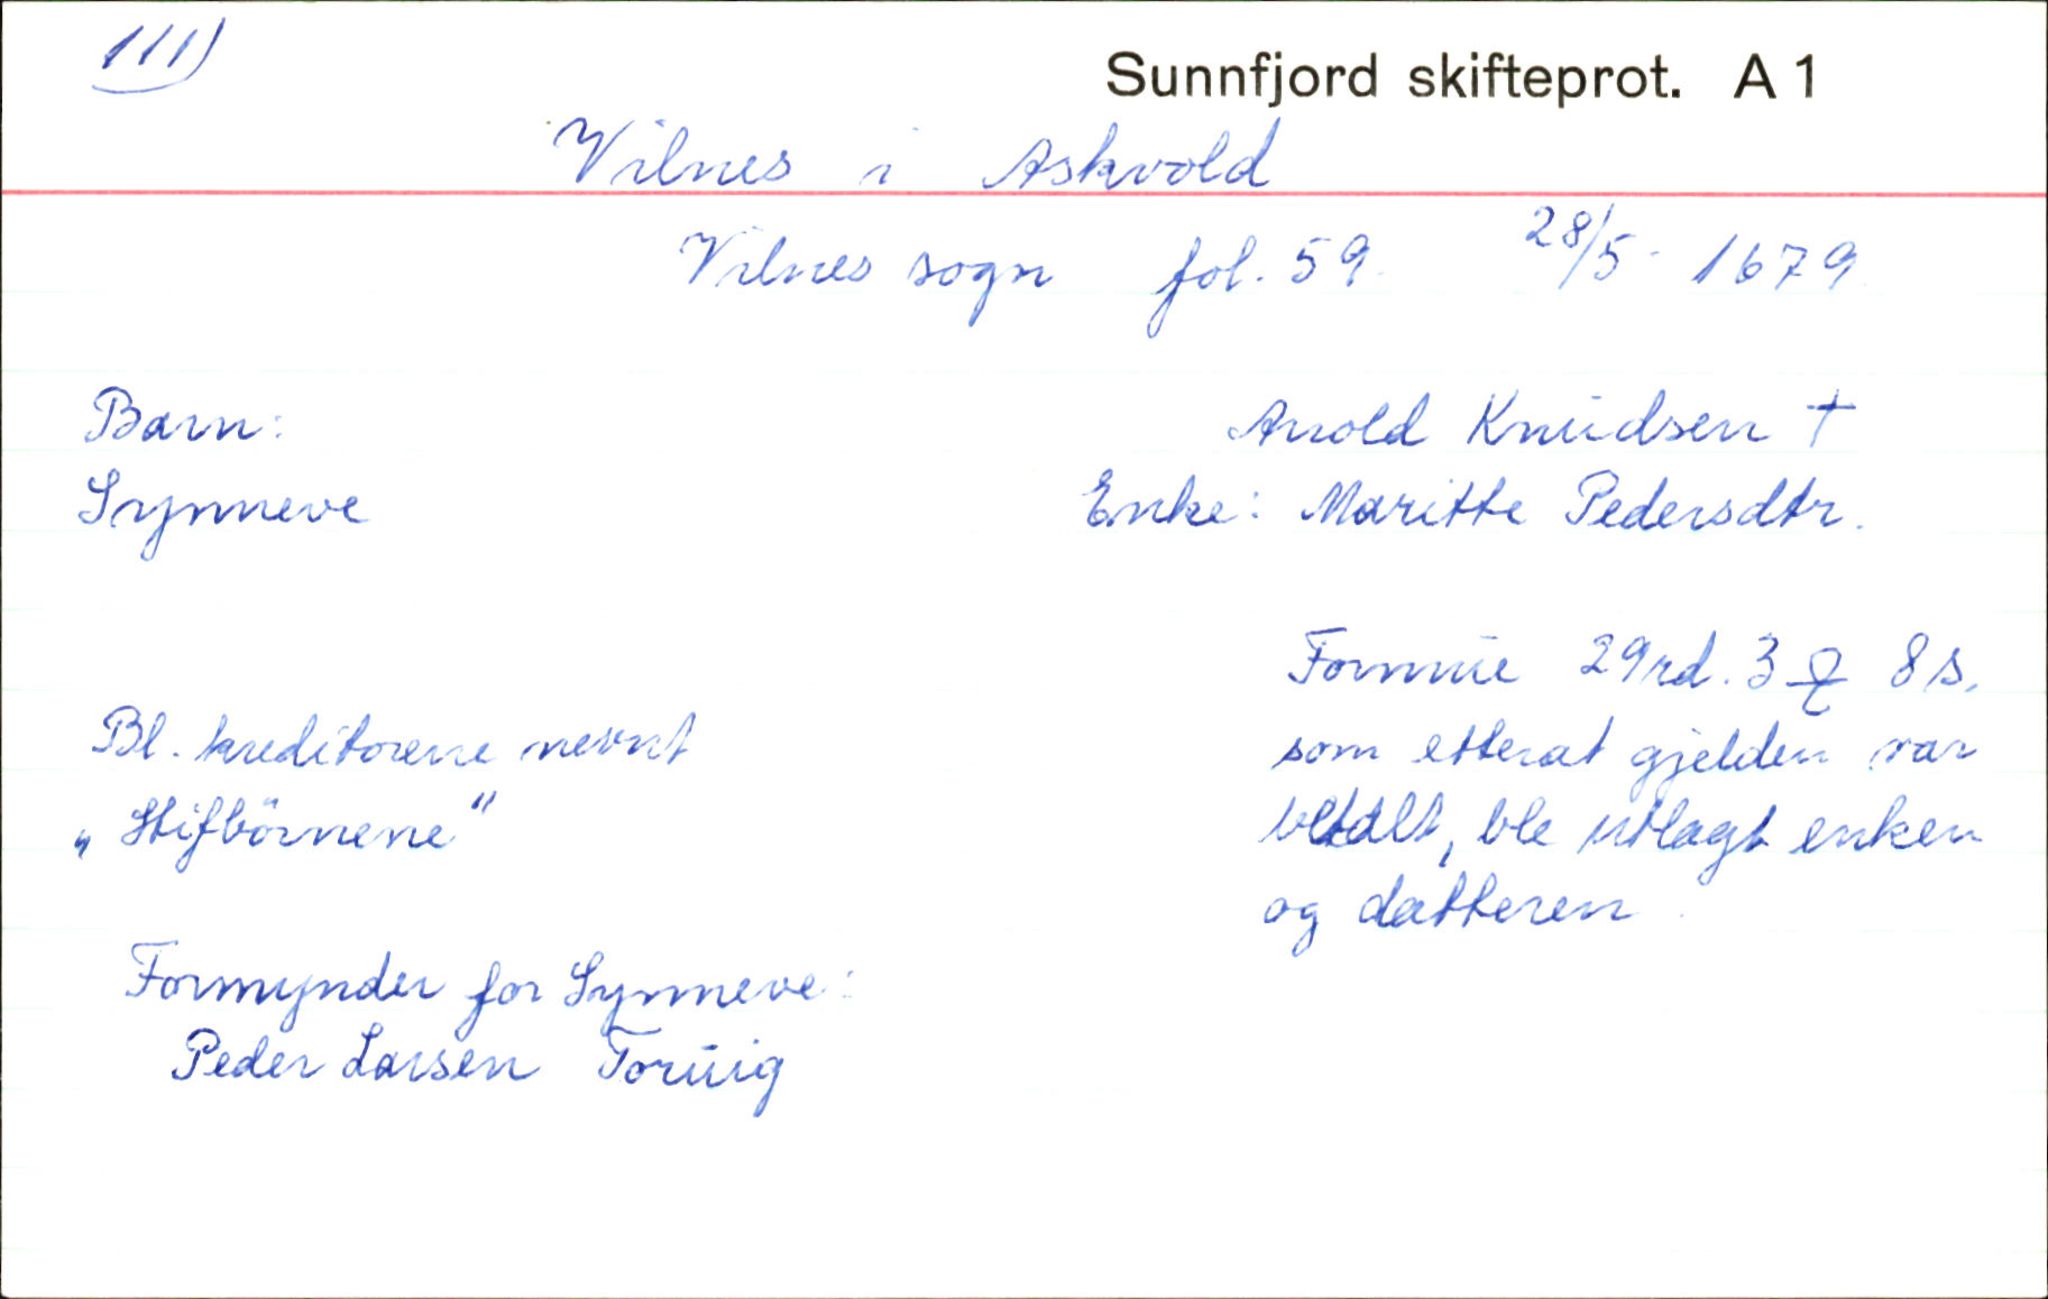 111)
Sunnfjord skifteprot. A 1
Vilnes i Askvold
Vilnes sogn fol. 59. 28/5 - 1679
Barn:
Synneve
Anold Knudsen †
Enke: Maritte Pedersdtr.
Formue 29 rd. 3 8 s.
som etterat gjelden var
betalt, ble utlagt enken
og datteren.
Bl. kreditorene nevnt
„Stifbörnene"
Formynder for Synneve:
Peder Larsen Toruig